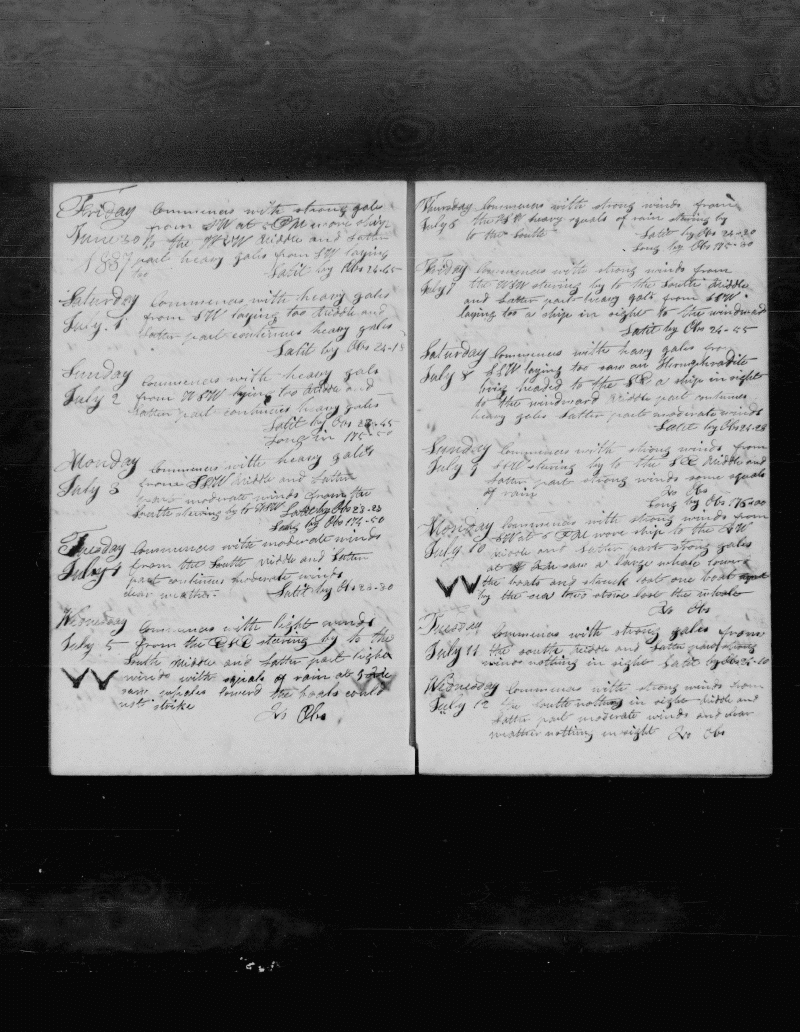 Friday Commences with strong gales
from SW at 5 PM wore ship
June 30 to the WNW Middle and Latter
1887 part heavy gales from SW laying
too Latit by Obs 24-45
Saturday Commences with heavy gales
July 1 from SW laying too Middle and
Latter part continues heavy gales
Latit by Obs 24-15
Sunday Commences with heavy gals
July 2 from WSW laying too Middle and
Latter part continues heavy gales
Latit by Obs 23-45
Long in 175-50
Monday Commences with heavy gales
July 3 from SSW Middle and Latter
part moderate winds from the
South stering by to WSW Latit by Obs 23-23
Long by Obs 174-50
Tuesday Commences with moderate winds
July 4 from the South Middle and Latter
part continues moderate winds
clear weather. Latit by Obs 23-30
Wednesday Commences with light winds
July 5 from the ESE stering by to the
South Middle and Latter part light
winds with squals of rain at
saw whales lowerd the boats could
not strike No Obs
Thursday Commences with strong winds from
July 6 the SSW heavy squals of rain stering by
to the South Latit by Obs 24-30
Long by Obs 175-30
Friday Commences with strong winds from
July 7 the WSW stering by to the South Middle
and Latter part heavy gals from SSW
laying too a ship in sight to the windward
Latit by Obs 24-55
Saturday Commences withs heavy gales
July 8 SSW laying too saw an
brig headed to the SE a ship in sight
to the windward Middle part continues
heavy gales Latter part moderate winds
Latit by Obs 24-28
Sunday Commences with strong winds from
July 9 SW stering by to the SE Middle and
Latter part strong winds some squals
of rain No Obs
Long by Obs 175-00
Monday Commences with strong winds from
July 10 SW at 5 PM wore ship to the SW
Middle and Latter part strong gales
at saw a large whale lowerd
the boats and struck lost one boat
by the sea two stove lost the whale
No Obs
Tuesday Commences with strong gales from
July 11 the south Middle and Latter part strong
winds nothing in sight Latit by Obs 25-10
Wednesday Commences with strong winds from
July 12 the South nothing in sight Middle and
Latter part moderate winds and clear
weather nothing in sight No Obs